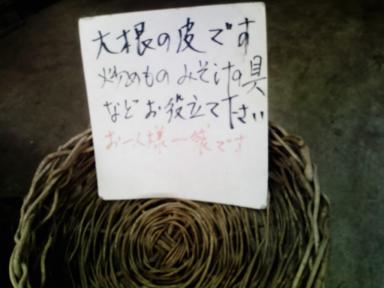 大根の皮です
炒めもの みそ汁の具
などお役立て下さい
お一人様一袋です